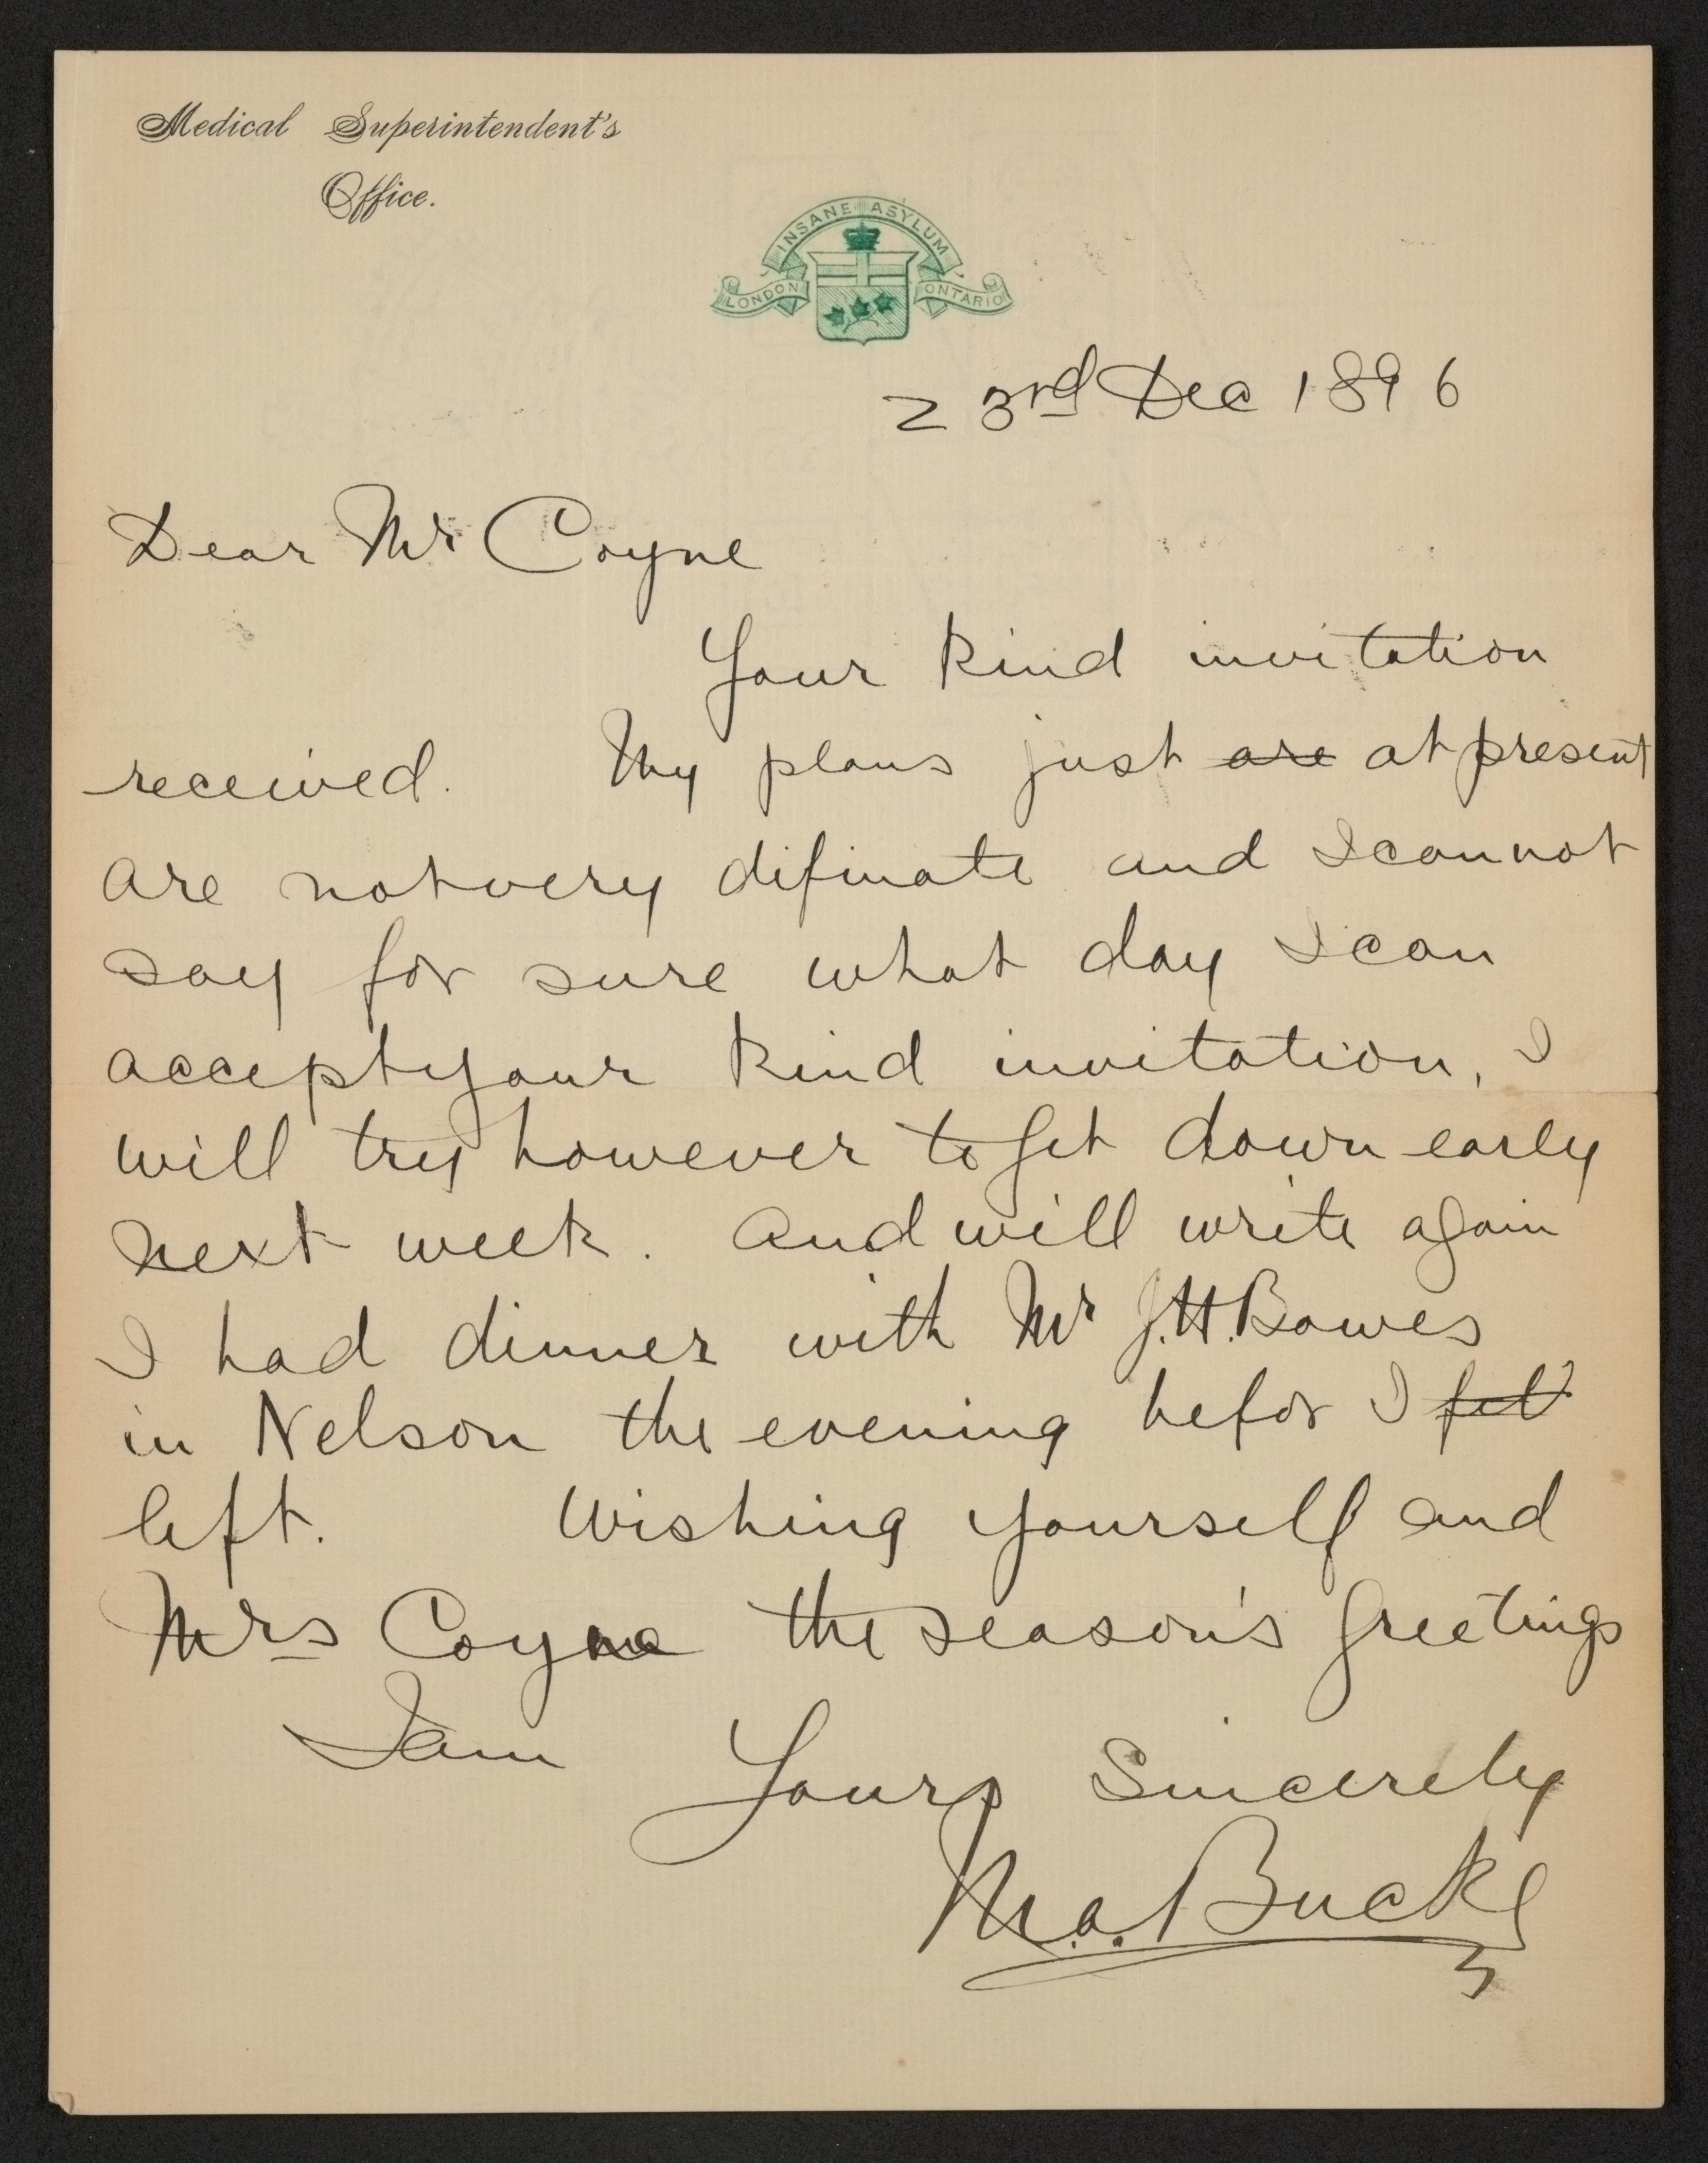 Medical Superintendent's
Office.
INSANE ASYLUM
LONDON ONTARIO
23rd Dec 1896
Dear Mr Coyne
Your kind invitation
received. My plans just are at present
are not very difinate and I cannot
say for sure what day I can
accept your kind invitation, I
will try however to get down early
next week. and will write again
I had dinner with Mr J.H. Bowes
in Nelson the evening befor I
left. Wishing yourself and
Mrs Coyne the season's greetings
I am Yours Sincerely
M.a. Bucke